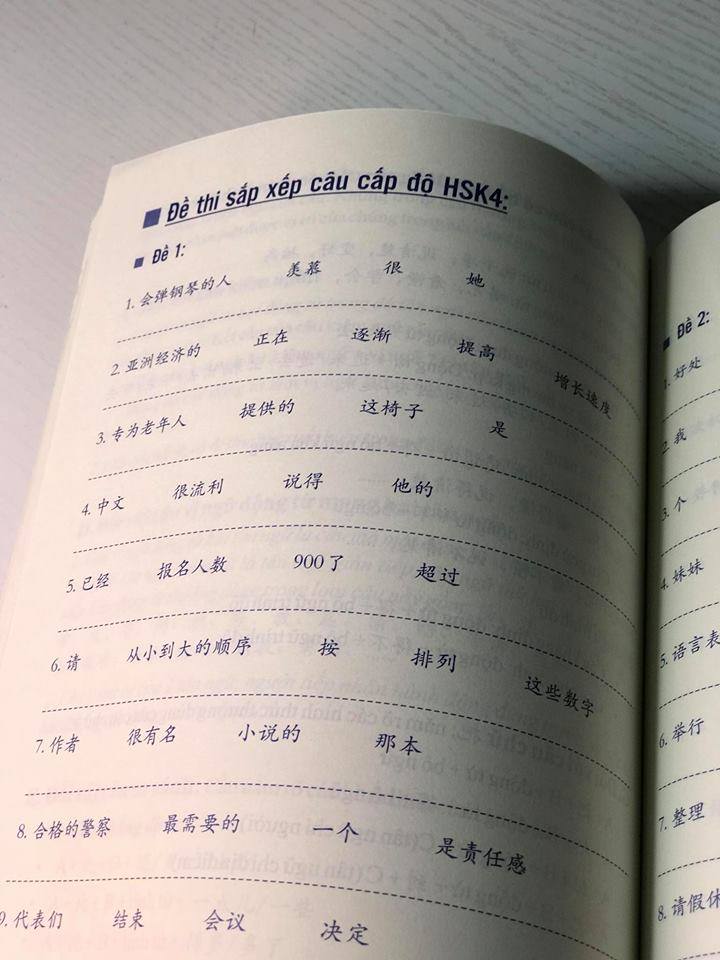 Đề thi sắp xếp câu cấp độ HSK4:
Đề 1:
1. 会弹钢琴的人 羡慕 很 她
2. 亚洲经济的 正在 逐渐 提高 增长速度
3. 专为老年人 提供的 这椅子 是
4. 中文 很流利 说得 他的
5. 已经 报名人数 900了 超过
6. 请 从小到大的顺序 按 排列 这些数字
7. 作者 很有名 小说的 那本
8. 合格的警察 最需要的 一个 是责任感
9. 代表们 结束 会议 决定
Đề 2:
1. 好处
2. 我
3. 个
4. 妹妹
5. 语言表
6. 举行
7. 整理
8. 请假休